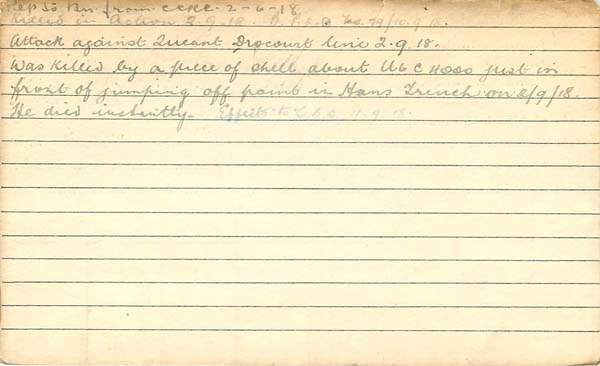 Rep to Bn. from CCRC. 2-6-18
Killed in Action 2.9.18. 79/10.9.18.
Attack against Queant Drocourt line 2.9.18.
Was killed by a piece of shell about U 6 C 4000 just in
front of jumping off point in Hans Trench on 2/9/18.
He died instantly. Effects to 11.9.18.